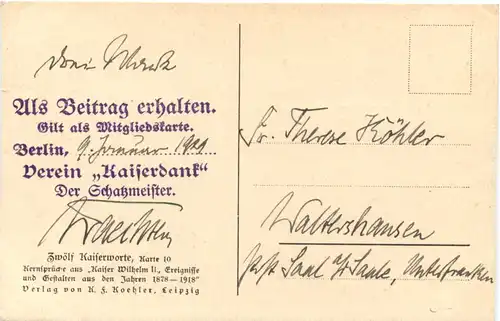 drei Mark
Als Beitrag erhalten.
Gilt als Mitgliedskarte.
Berlin, 9. Januar 1929
Verein „Kaiserdank"
Der Schatzmeister.
Zwölf Kaiserworte, Karte 10
Kernsprüche aus „Kaiser Wilhelm II., Ereignisse
und Gestalten aus den Jahren 1878—1918"
Verlag von K. F. Koehler, Leipzig
Fr. Therese Köhler
Waltershausen
Post Saal a/Saale, Unterfranken